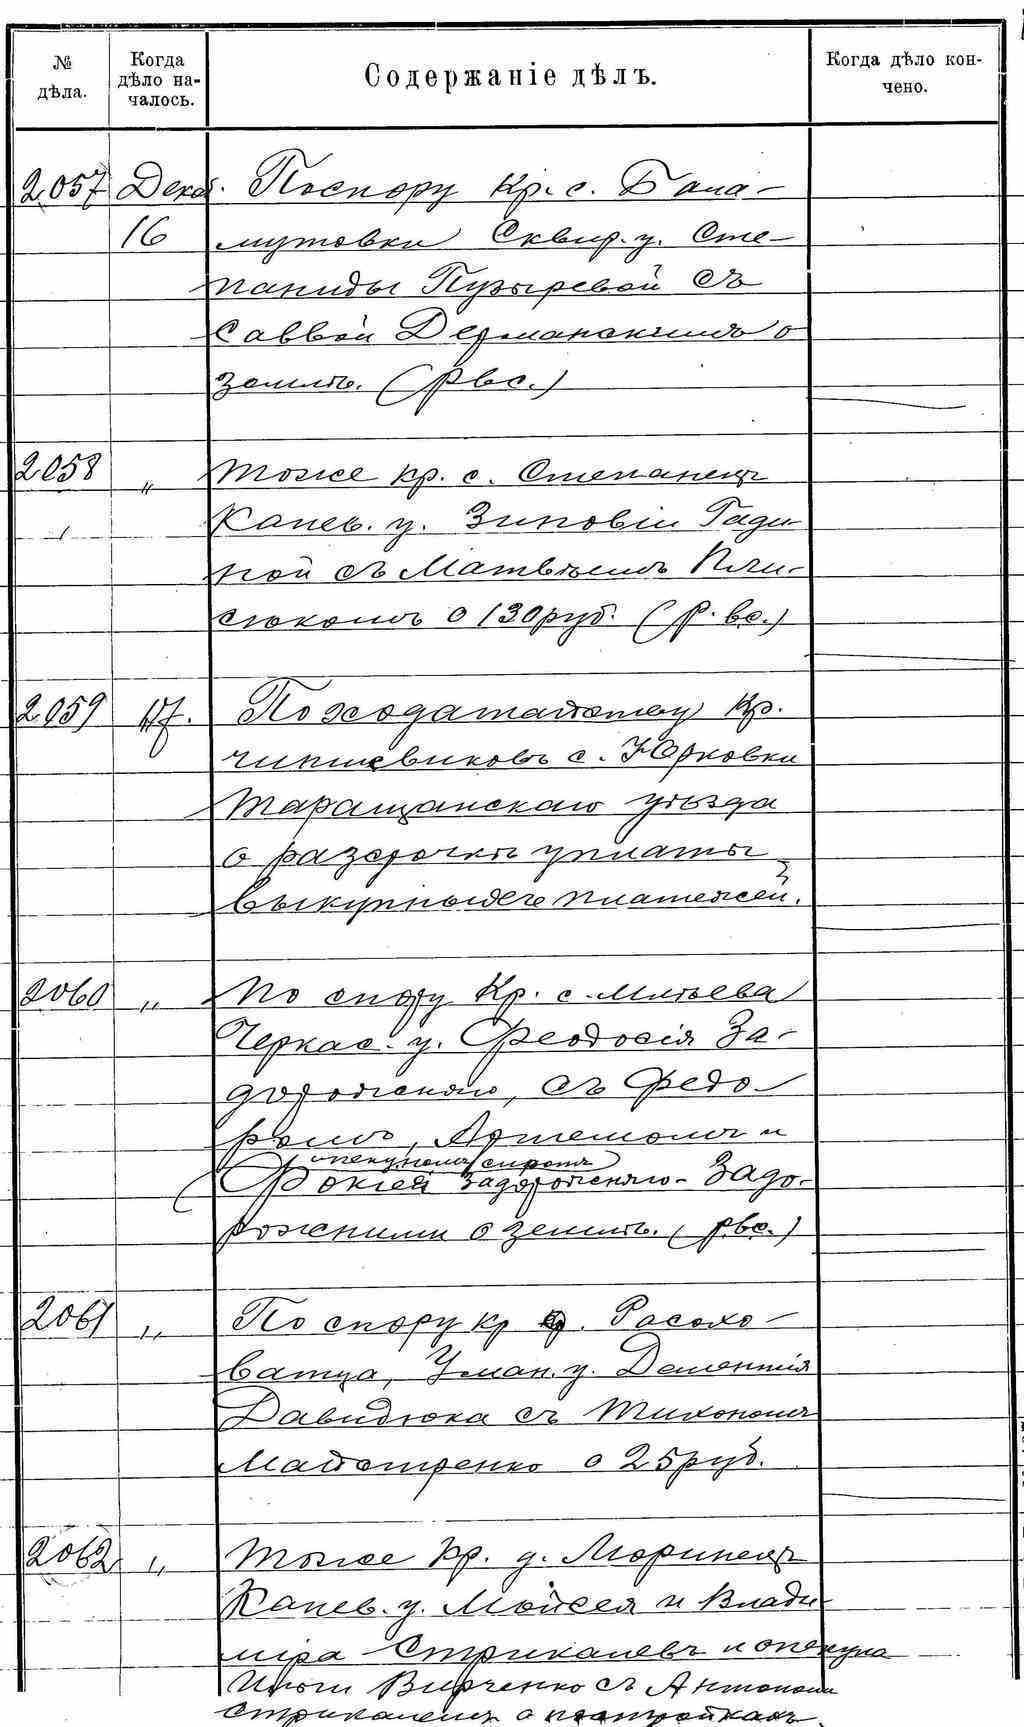 № дѣла.
Когда дѣло началось.
Содержаніе дѣлъ.
Когда дѣло кончено.
2057 Декаб. По спору Кр. с. Бала-
16 мутовки Сквир. у. Сте-
паниды Пузыревой съ
Саввой Дерманскимъ о
землѣ. (рвс.)
2058 „ тоже кр. с. Степанецъ
Канев. у. Зиновіи Гади-
ной съ Матвѣемъ Пли-
сюкомъ о 130 руб. (р. вс.)
2059 17. По ходатайству Кр.
чиншевиковъ с. Юрковки
Таращанскаго уѣзда
о разсрочкѣ уплаты
выкупныхъ платежей.
2060 „ по спору Кр. с. Млѣева
Черкас. у. Феодосія За-
дорожняго, съ Федо-
ромъ, Артемомъ и
опекуномъ сиротъ
Фокіей Задорожняго Задо-
рожними о землѣ. (рвс.)
2061 „ По спору кр. с. Расохо-
ватца, Уман. у. Дементія
Давидюка съ Тихономъ
Майстренко о 25 руб.
2062 „ тоже Кр. д. Моринецъ
Канев. у. Мойсея и Влади-
міра Стрикалевъ и опекуна
Вирченко съ Антономъ
Стрикалемъ о постройкахъ.